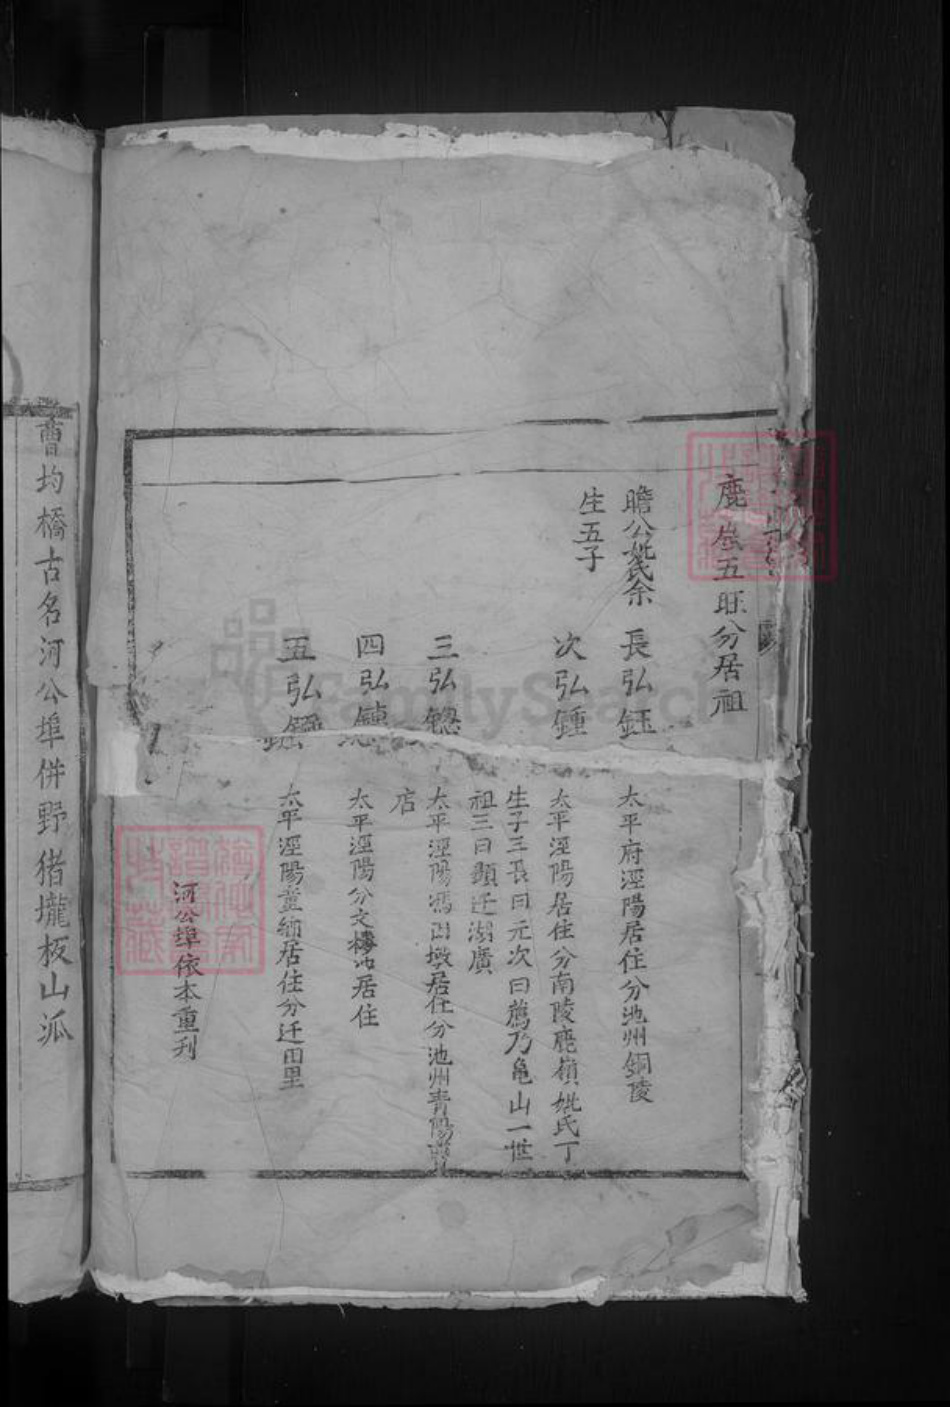 鹿嵅五旺分居祖
瞻公妣氏余
生五子
長弘鈺
太平府涇陽居住分池州銅陵
次弘鍾
太平涇陽居住分南陵鹿嶺妣氏丁
生子三長曰元次曰薦乃龜山一世
祖三曰顯迁湖廣
三弘鏓
太平涇陽馮田墩居住分池州青陽
店
四弘
太平涇陽分文樓居住
五弘
太平涇陽董緬居住分迁田里
河公埠依本重刊
曹均橋古名河公埠併野猪壠板山泒
FamilySearch